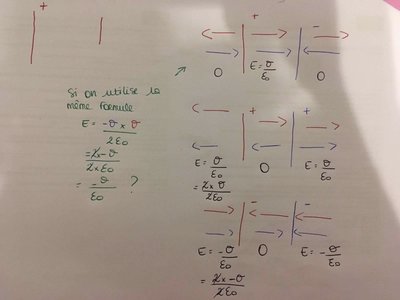 +
Si on utilise la
même formule
E = -σ × σ / 2ε₀
= 2× -σ / 2×ε₀
= -σ / ε₀ ?
+ -
0 E = σ/ε₀ 0
+ +
E = σ/ε₀ 0 E = σ/ε₀
= 2×σ / 2ε₀
- -
E = -σ/ε₀ 0 E = -σ/ε₀
= 2× -σ / 2ε₀